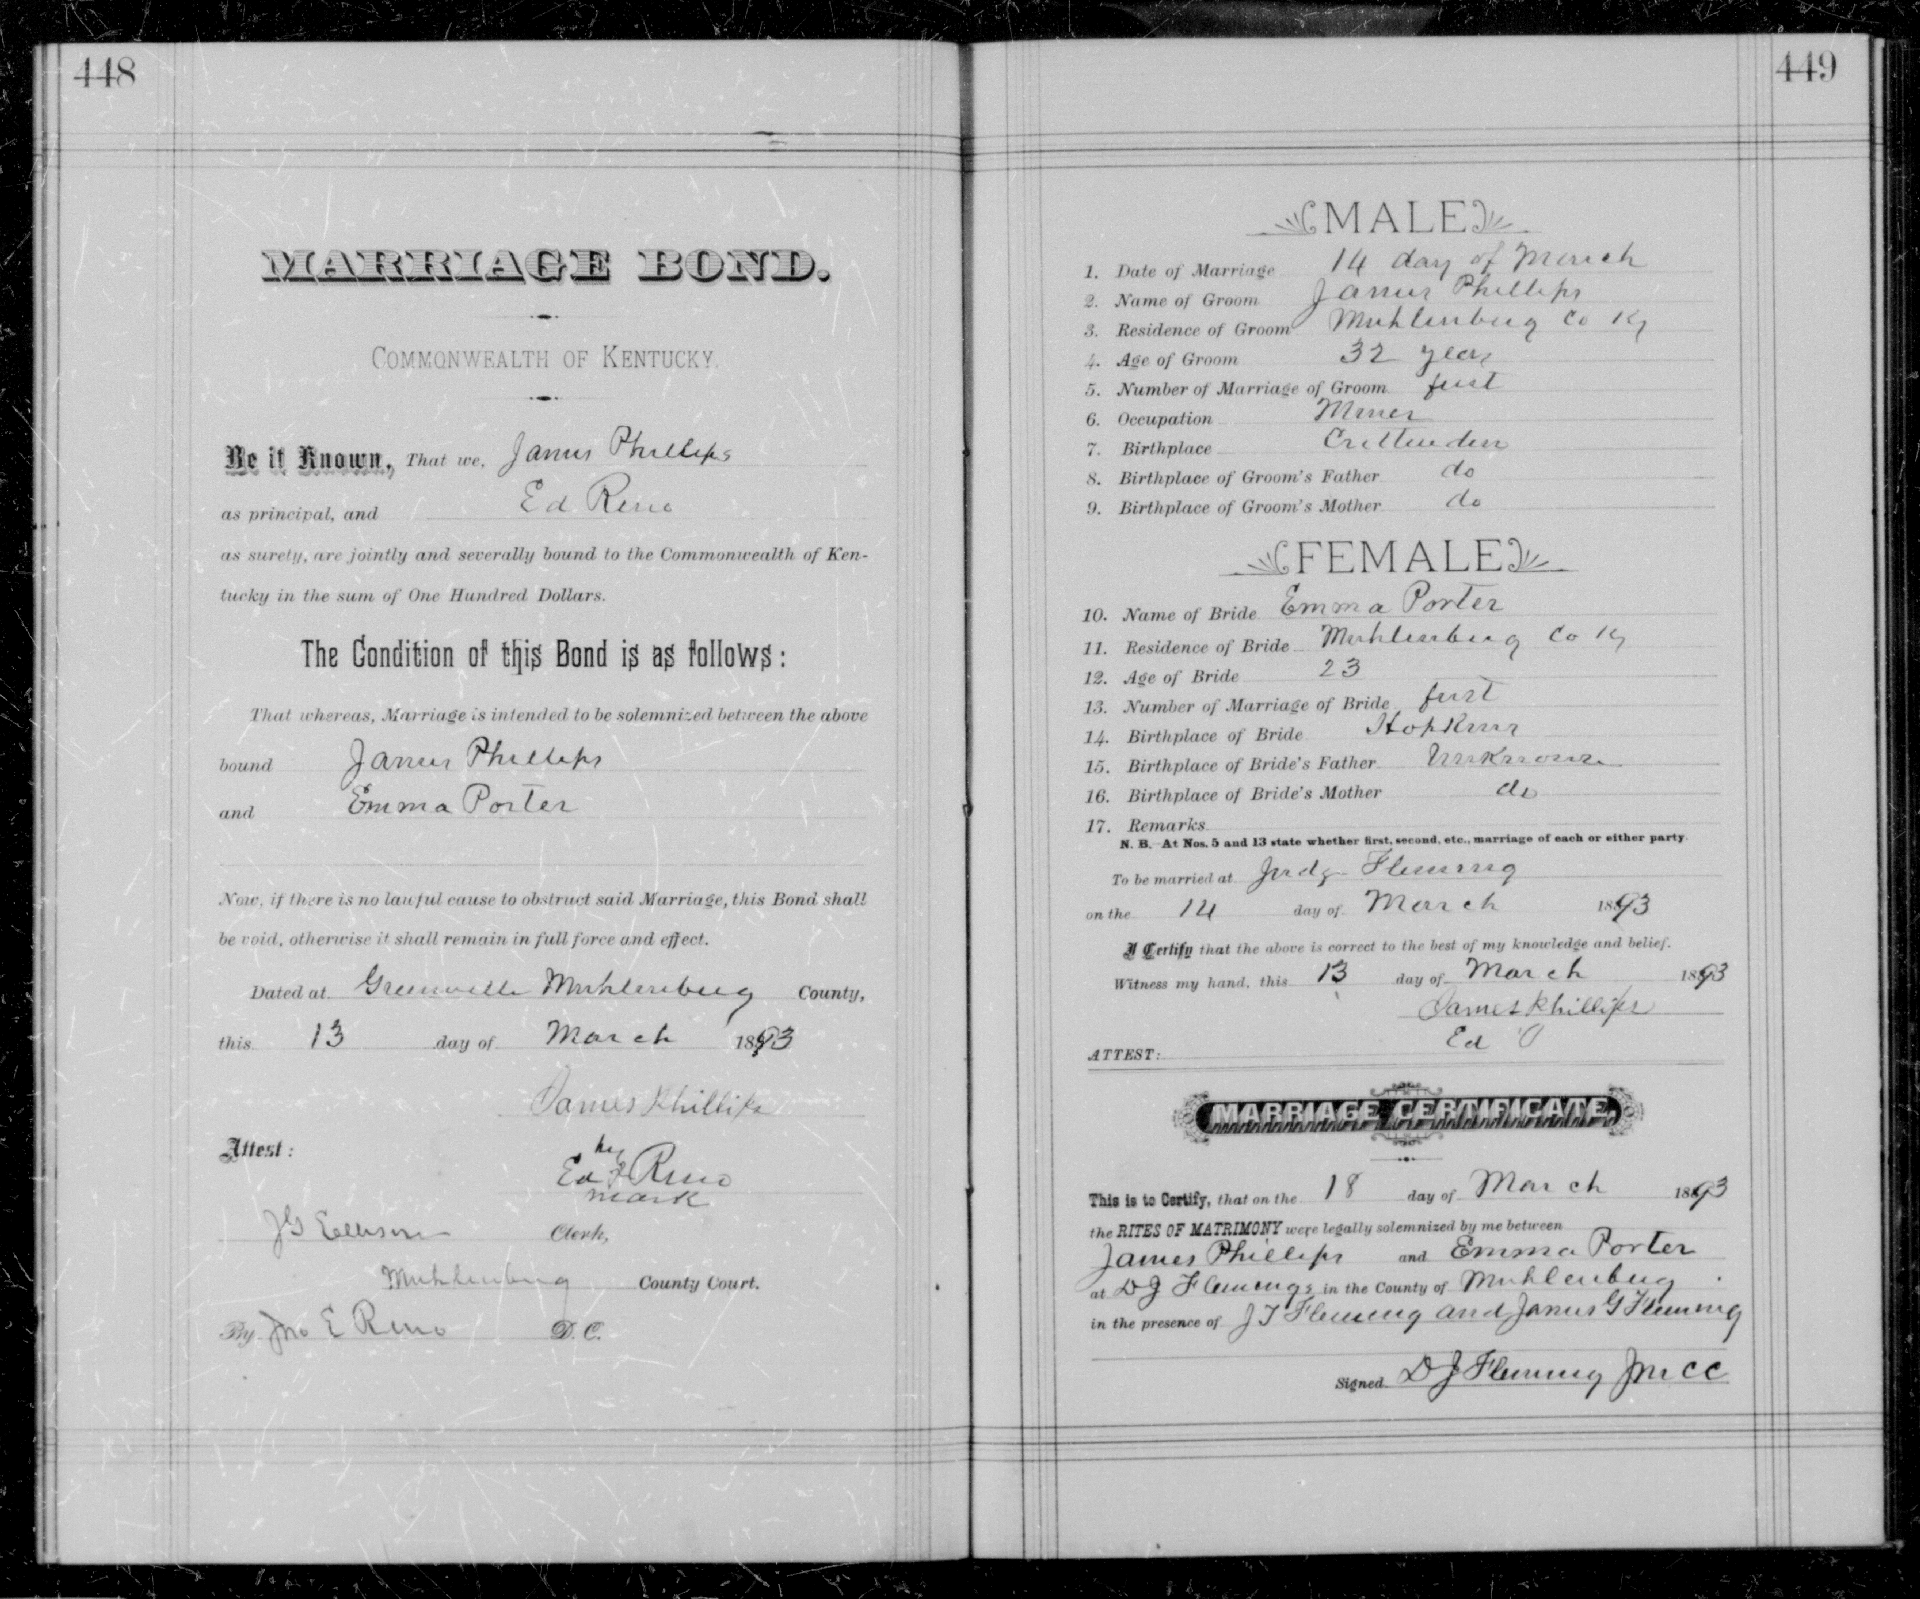 448
MARRIAGE BOND.
COMMONWEALTH OF KENTUCKY.
Be it Known, That we, James Phillips
as principal, and Ed Reno
as surety, are jointly and severally bound to the Commonwealth of Ken-
tucky in the sum of One Hundred Dollars.
The Condition of this Bond is as follows:
That whereas, Marriage is intended to be solemnized between the above
bound James Phillips
and Emma Porter
Now, if there is no lawful cause to obstruct said Marriage, this Bond shall
be void, otherwise it shall remain in full force and effect.
Dated at Greenville Muhlenburg County,
this 13 day of March 1893
James Phillips
Attest:
his
Ed X Reno
mark
JG Ellison Clerk,
Muhlenburg County Court.
By Jno E Reno D. C.
449
MALE
1. Date of Marriage 14 day of March
2. Name of Groom James Phillips
3. Residence of Groom Muhlenburg Co Ky
4. Age of Groom 32 years
5. Number of Marriage of Groom first
6. Occupation Miner
7. Birthplace Crittenden
8. Birthplace of Groom's Father do
9. Birthplace of Groom's Mother do
FEMALE
10. Name of Bride Emma Porter
11. Residence of Bride Muhlenburg Co Ky
12. Age of Bride 23
13. Number of Marriage of Bride first
14. Birthplace of Bride Hopkins
15. Birthplace of Bride's Father Unknown
16. Birthplace of Bride's Mother do
17. Remarks
N. B. At Nos. 5 and 13 state whether first, second, etc., marriage of each or either party.
To be married at Judge Fleming
on the 14 day of March 1893
I Certify that the above is correct to the best of my knowledge and belief.
Witness my hand, this 13 day of March 1893
James Phillips
Ed
ATTEST:
MARRIAGE CERTIFICATE.
This is to Certify, that on the 18 day of March 1893
the RITES OF MATRIMONY were legally solemnized by me between
James Phillips and Emma Porter
at D J Flemings in the County of Muhlenburg
in the presence of J T Fleming and James G Fleming
Signed D J Fleming JMCC